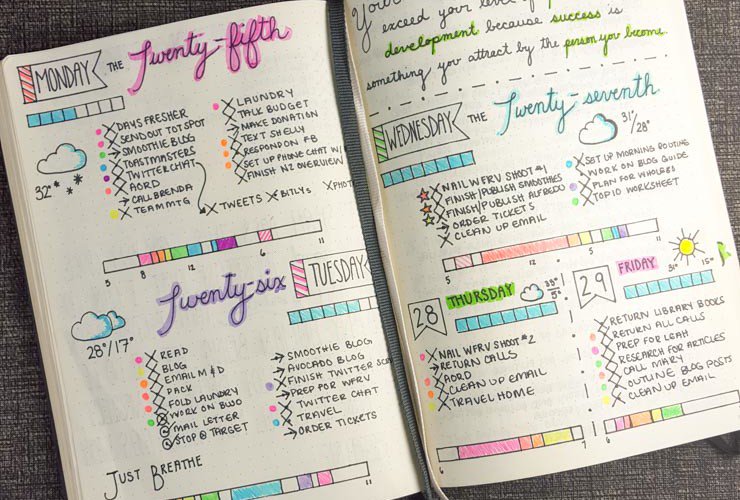 MONDAY THE Twenty-fifth
32°
X DAYS FRESHER
X SENDOUT TOTSPOT
→ SMOOTHIE BLOG
X TOASTMASTERS
X TWITTERCHAT
X AORD
→ CALL BRENDA
X TEAM MTG
X LAUNDRY
X TALK BUDGET
→ MAKE DONATION
X TEXT SHELLY
X RESPOND ON FB
X SET UP PHONE CHAT W/
X FINISH NZ OVERVIEW
X TWEETS X BITLYS X PHOT
5 8 12 6 11
Twenty-six TUESDAY
28°/17°
X READ
X BLOG
X EMAIL M & D
X PACK
X FOLD LAUNDRY
X WORK ON BWO
MAIL LETTER
STOP @ TARGET
→ SMOOTHIE BLOG
→ AVOCADO BLOG
X FINISH TWITTER
→ PREP FOR WFRV
X TWITTER CHAT
X TRAVEL
→ ORDER TICKETS
JUST BREATHE
11
exceed your level of
development because success is
something you attract by the person you become.
WEDNESDAY THE Twenty-seventh
31°/28°
X NAIL WFRV SHOOT #1
X FINISH/PUBLISH SMOOTHIES
X FINISH/PUBLISH ALFREDO
→ ORDER TICKETS
X CLEAN UP EMAIL
X SET UP MORNING ROUTINE
X WORK ON BLOG GUIDE
X PLAN FOR WHOLE85
X TOP 10 WORKSHEET
5 8 12 6 11
28 THURSDAY
35°/5°
X NAIL WFRV SHOOT #2
→ RETURN CALLS
X AORD
X CLEAN UP EMAIL
X TRAVEL HOME
6 12 7
29 FRIDAY
31° 15°
X RETURN LIBRARY BOOKS
X RETURN ALL CALLS
X PREP FOR LEAH
X RESEARCH FOR ARTICLES
X CALL MARY
X OUTLINE BLOG POSTS
X CLEAN UP EMAIL
6